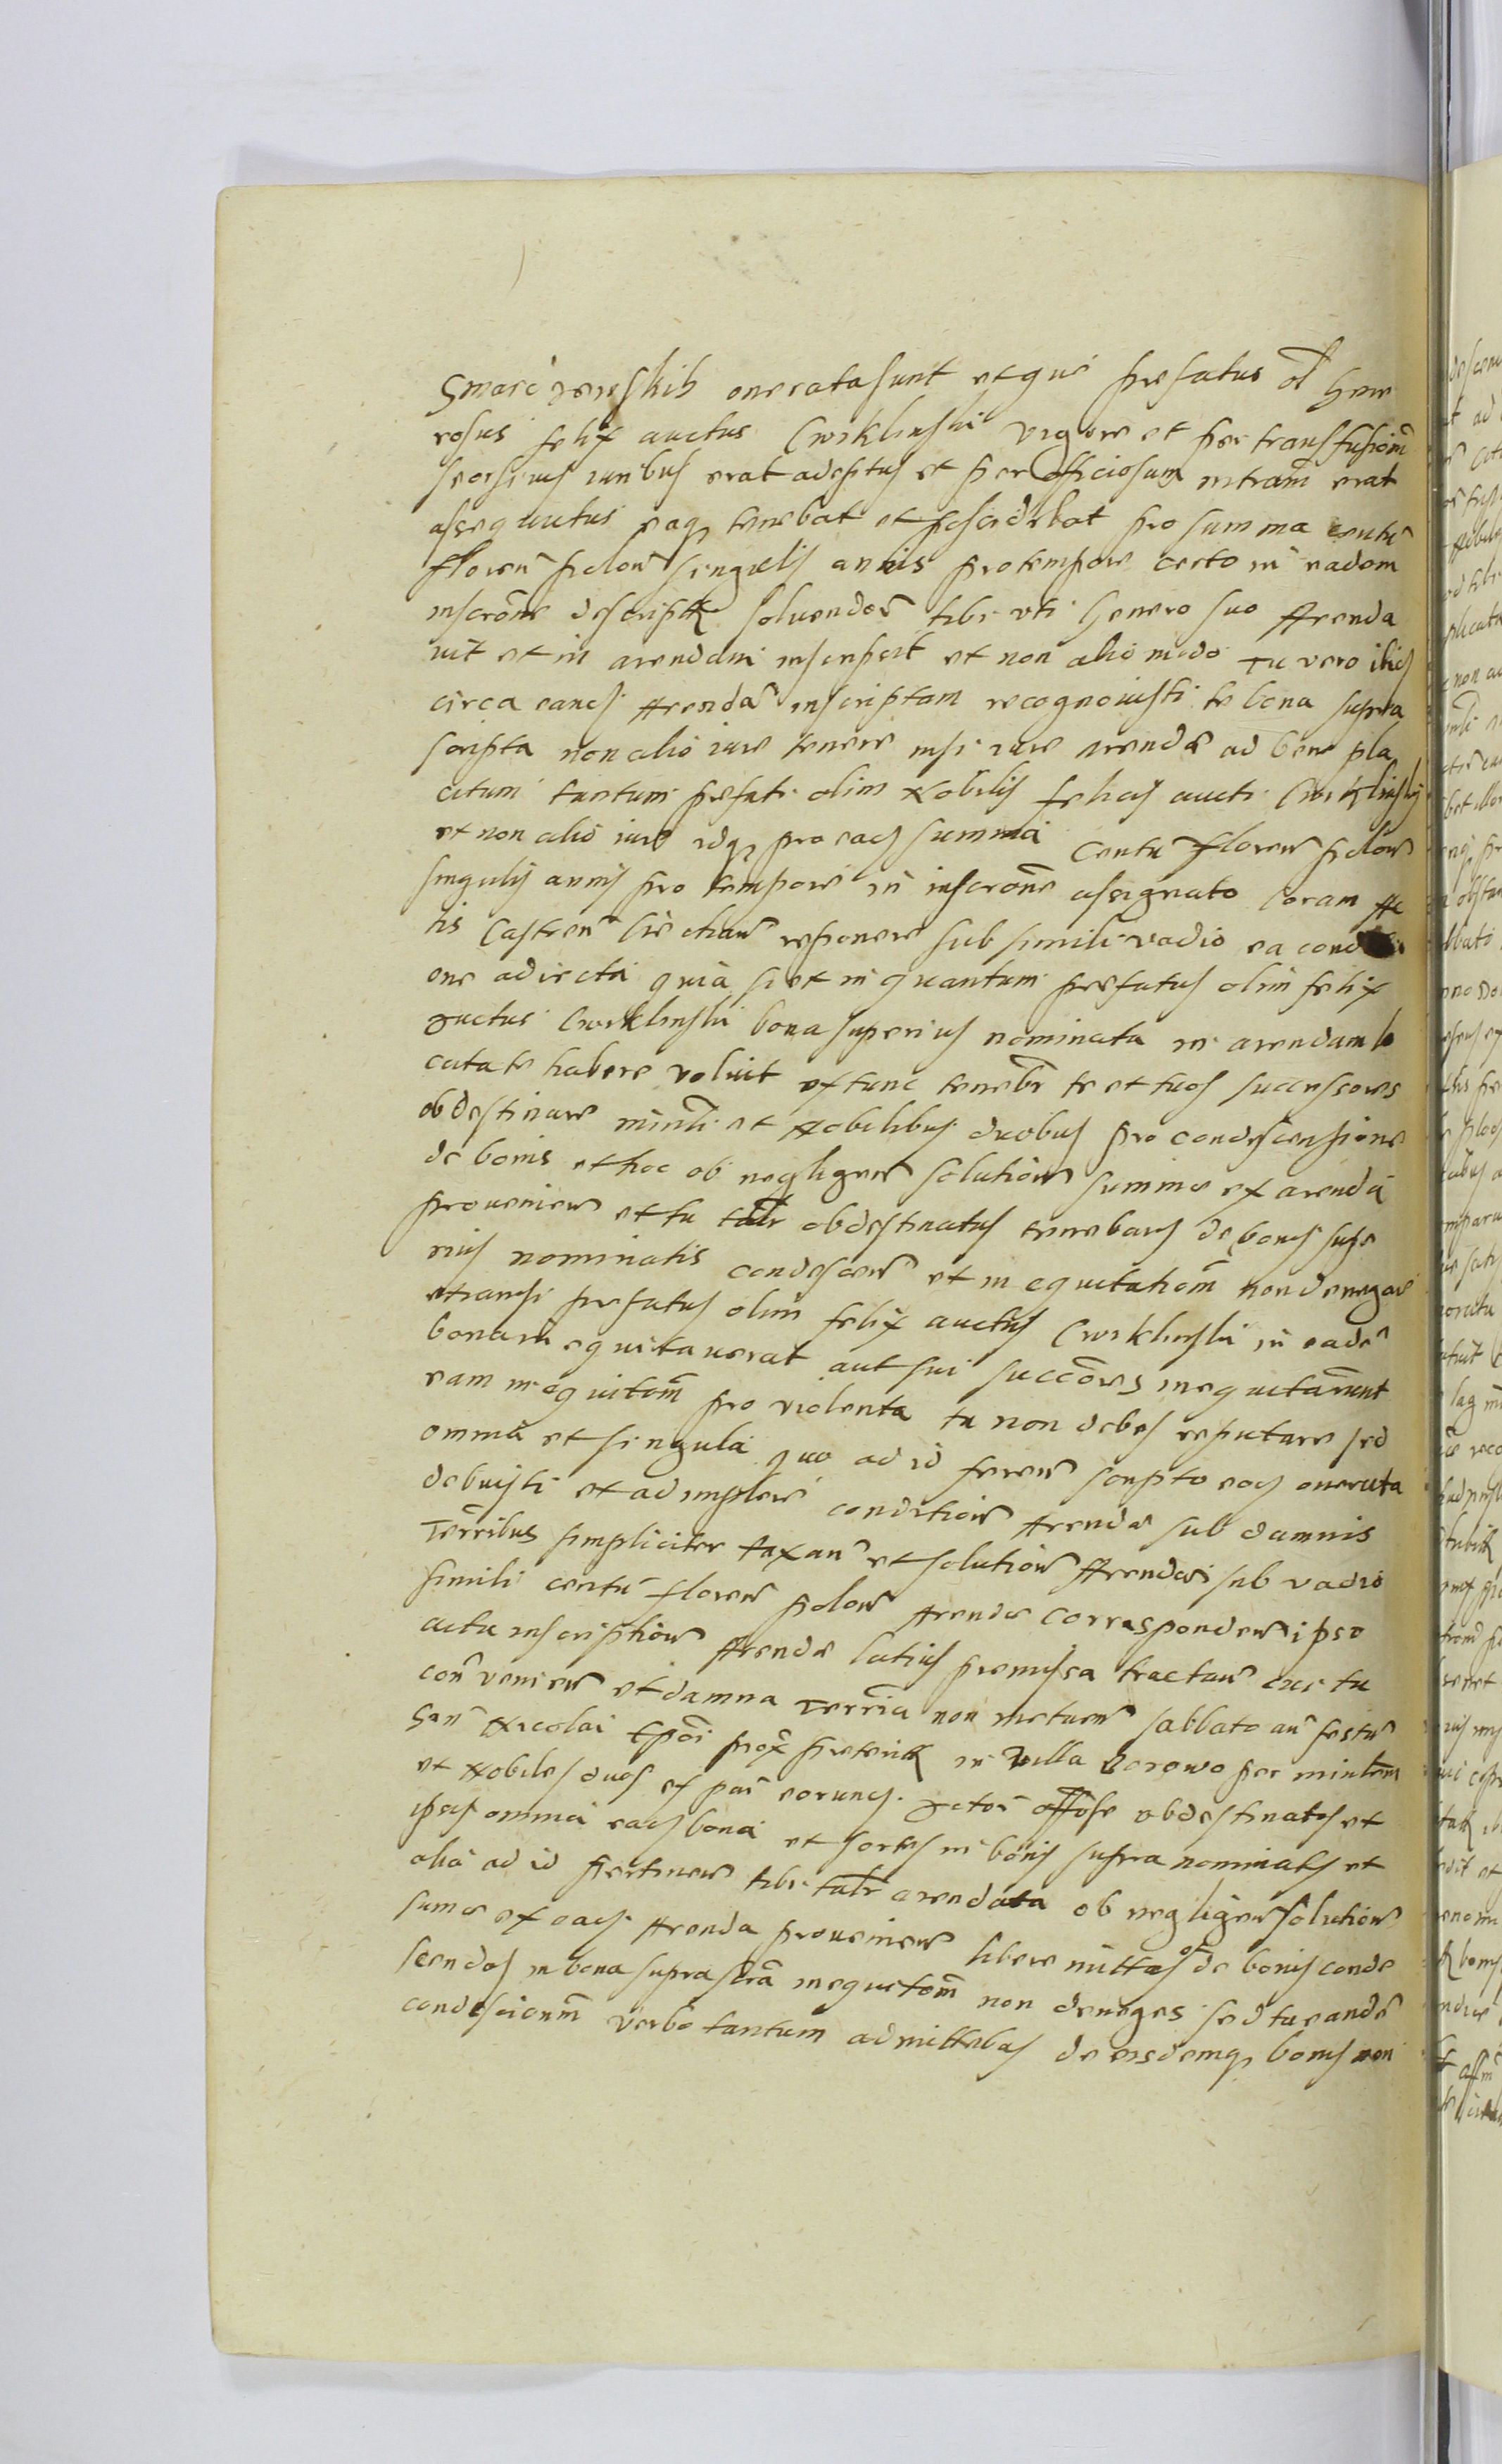 Smarczewskih onerata sunt et que prefatus ol Gene
rosus felix auctus Cwiklinski vigore et per transfusionē
seorsivus iuribus erat adeptus et per officiosam intram̄ erat
assequutus eaq̨ tenebat et possidebat pro summa centū
floren̄ polon̄ singulis annis pro tempore certo in eadem
inscrōne descript̨ soluendor̄ tibi vti Genero suo Arenda
uit et in arendam inscripsit et non alio modo Tu vero ibid̨
circa eand̨ Arendā inscriptam recognouisti te bona supra
scripta non alio iure tenere nisi iure arendæ ad bene pla
citum tantum præfati olim Nobilis felicis aucti Cwiklinskij
et non alio iure idq̨ pro ead̨ summa Centū floren̄ polon̄
singulis annis pro tempore in inscrōne assignato Coram Ac
tis Castren̄ reponere sub simili vadio ea conditi
one adiecta quia si et in quantum præfatus olim felix
auctus Cwiklinski bona superius nominata in arendam lo
cata te habere voluit ex tunc teneb̄r te et tuos successores
obdestinare minl̄i et Nobilibus duobus pro condescensione
de bonis et hoc ob negligen̄ solution̄ summæ ex arenda
prouenien̄ et tu tal̄r obdestinatus tenebaris de bonis supe
rius nominatis condescen̄ et in equitationē non denegare
etiamsi præfatus olim felix auctus Cwiklinski in eadē
bona in equitauerat aut sui succōres inequitarunt
eam inequitonē pro violenta tu non debes reputare sed
omnia et singula quo ad id feren̄ scripto eod̨ onerata
debuisti et adimplere condition̄ Arendæ sub damnis
Terr̄ribus simpliciter taxan̄ et solution̄ Arendæ sub vadio
simili centū floren̄ polon̄ Arendæ Corresponden̄ ipso
actu inscription̄ Arendæ latius præmissa tractan̄ cui tu
con̄ venien̄ et damna Terr̄ria non metuen̄ sabbato an̄ festū
San̄ Nicolai Ep̄oi prox̄ præterit̨ in Villa Borowo per minlem̄
et Nobiles duos ex par̄ eorund̨ Actor̄ offōse obdestinatus et
ipsis omnia ead̨ bona et sortes in bonis supra nominatis et
alia ad id pertinen̄ tibi tal̄r arendata ob negligen̄ solution̄
sumæ ex ead̨ Arenda prouenien̄ libere mittas de bonis conde
scendos in bona suprasc̄ra inequitōm̄ non deneges sed tu eandē
condescionem̄ verbo tantum admittebas de eisdemq̨ bonis non